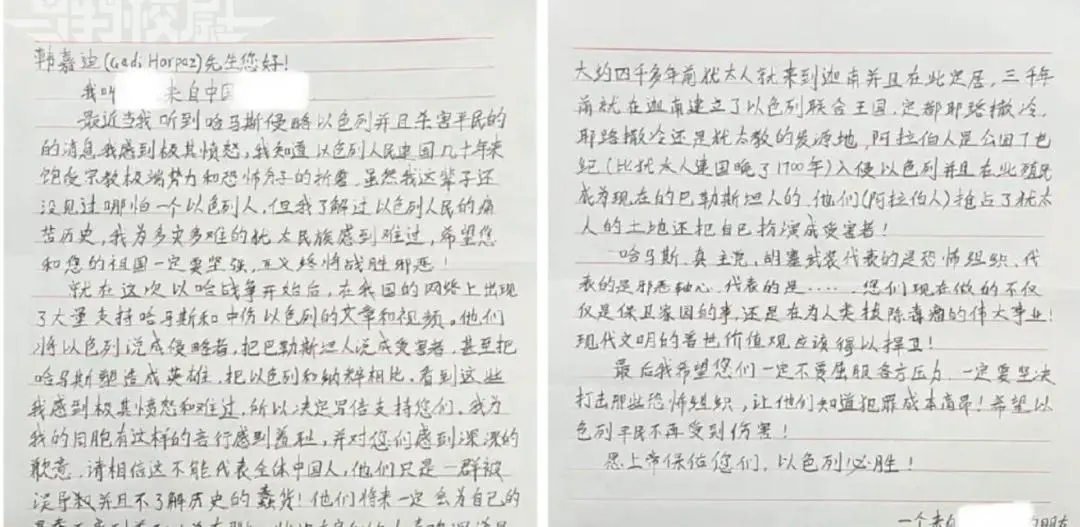 韩嘉迪(Gadi Harpaz)先生您好!
我叫 来自中国
最近当我听到哈马斯侵略以色列并且杀害平民的
的消息我感到极其愤怒,我知道以色列人民建国几十年来
饱受宗教极端势力和恐怖分子的折磨.虽然我这辈子还
没见过哪怕一个以色列人,但我了解过以色列人民的痛
苦历史,我为多灾多难的犹太民族感到难过,希望您
和您的祖国一定要坚强,正义终将战胜邪恶!
就在这次以哈战争开始后,在我国的网络上出现
了大量支持哈马斯和中伤以色列的文章和视频。他们
将以色列说成侵略者,把巴勒斯坦人说成受害者,甚至把
哈马斯塑造成英雄,把以色列和纳粹相比,看到这些
我感到极其愤怒和难过,所以决定写信支持您们,我为
我的同胞有这样的言行感到羞耻,并对您们感到深深的
歉意.请相信这不能代表全体中国人,他们只是一群被
误导欺并且不了解历史的蠢货!他们将来一定会为自己的
大约四千多年前犹太人就来到迦南并且在此定居,三千年
前就在迦南建立了以色列联合王国,定都耶路撒冷.
耶路撒冷还是犹太教的发源地,阿拉伯人是公园7世
纪(比犹太人建国晚了1700年)入侵以色列并且在此殖民
成为现在的巴勒斯坦人的,他们(阿拉伯人)抢占了犹太
人的土地还把自己扮演成受害者!
哈马斯、真主党,胡塞武装代表的是恐怖组织、代
表的是邪恶轴心、代表的是……,您们现在做的不仅
仅是保卫家园的事,还是在为人类拔除毒瘤的伟大事业!
现代文明的普世价值观应该得以捍卫!
最后我希望您们一定不要屈服各方压力,一定要坚决
打击那些恐怖组织,让他们知道犯罪成本高昂!希望以
色列平民不再受到伤害!
愿上帝保佑您们,以色列必胜!
一个来自 的朋友